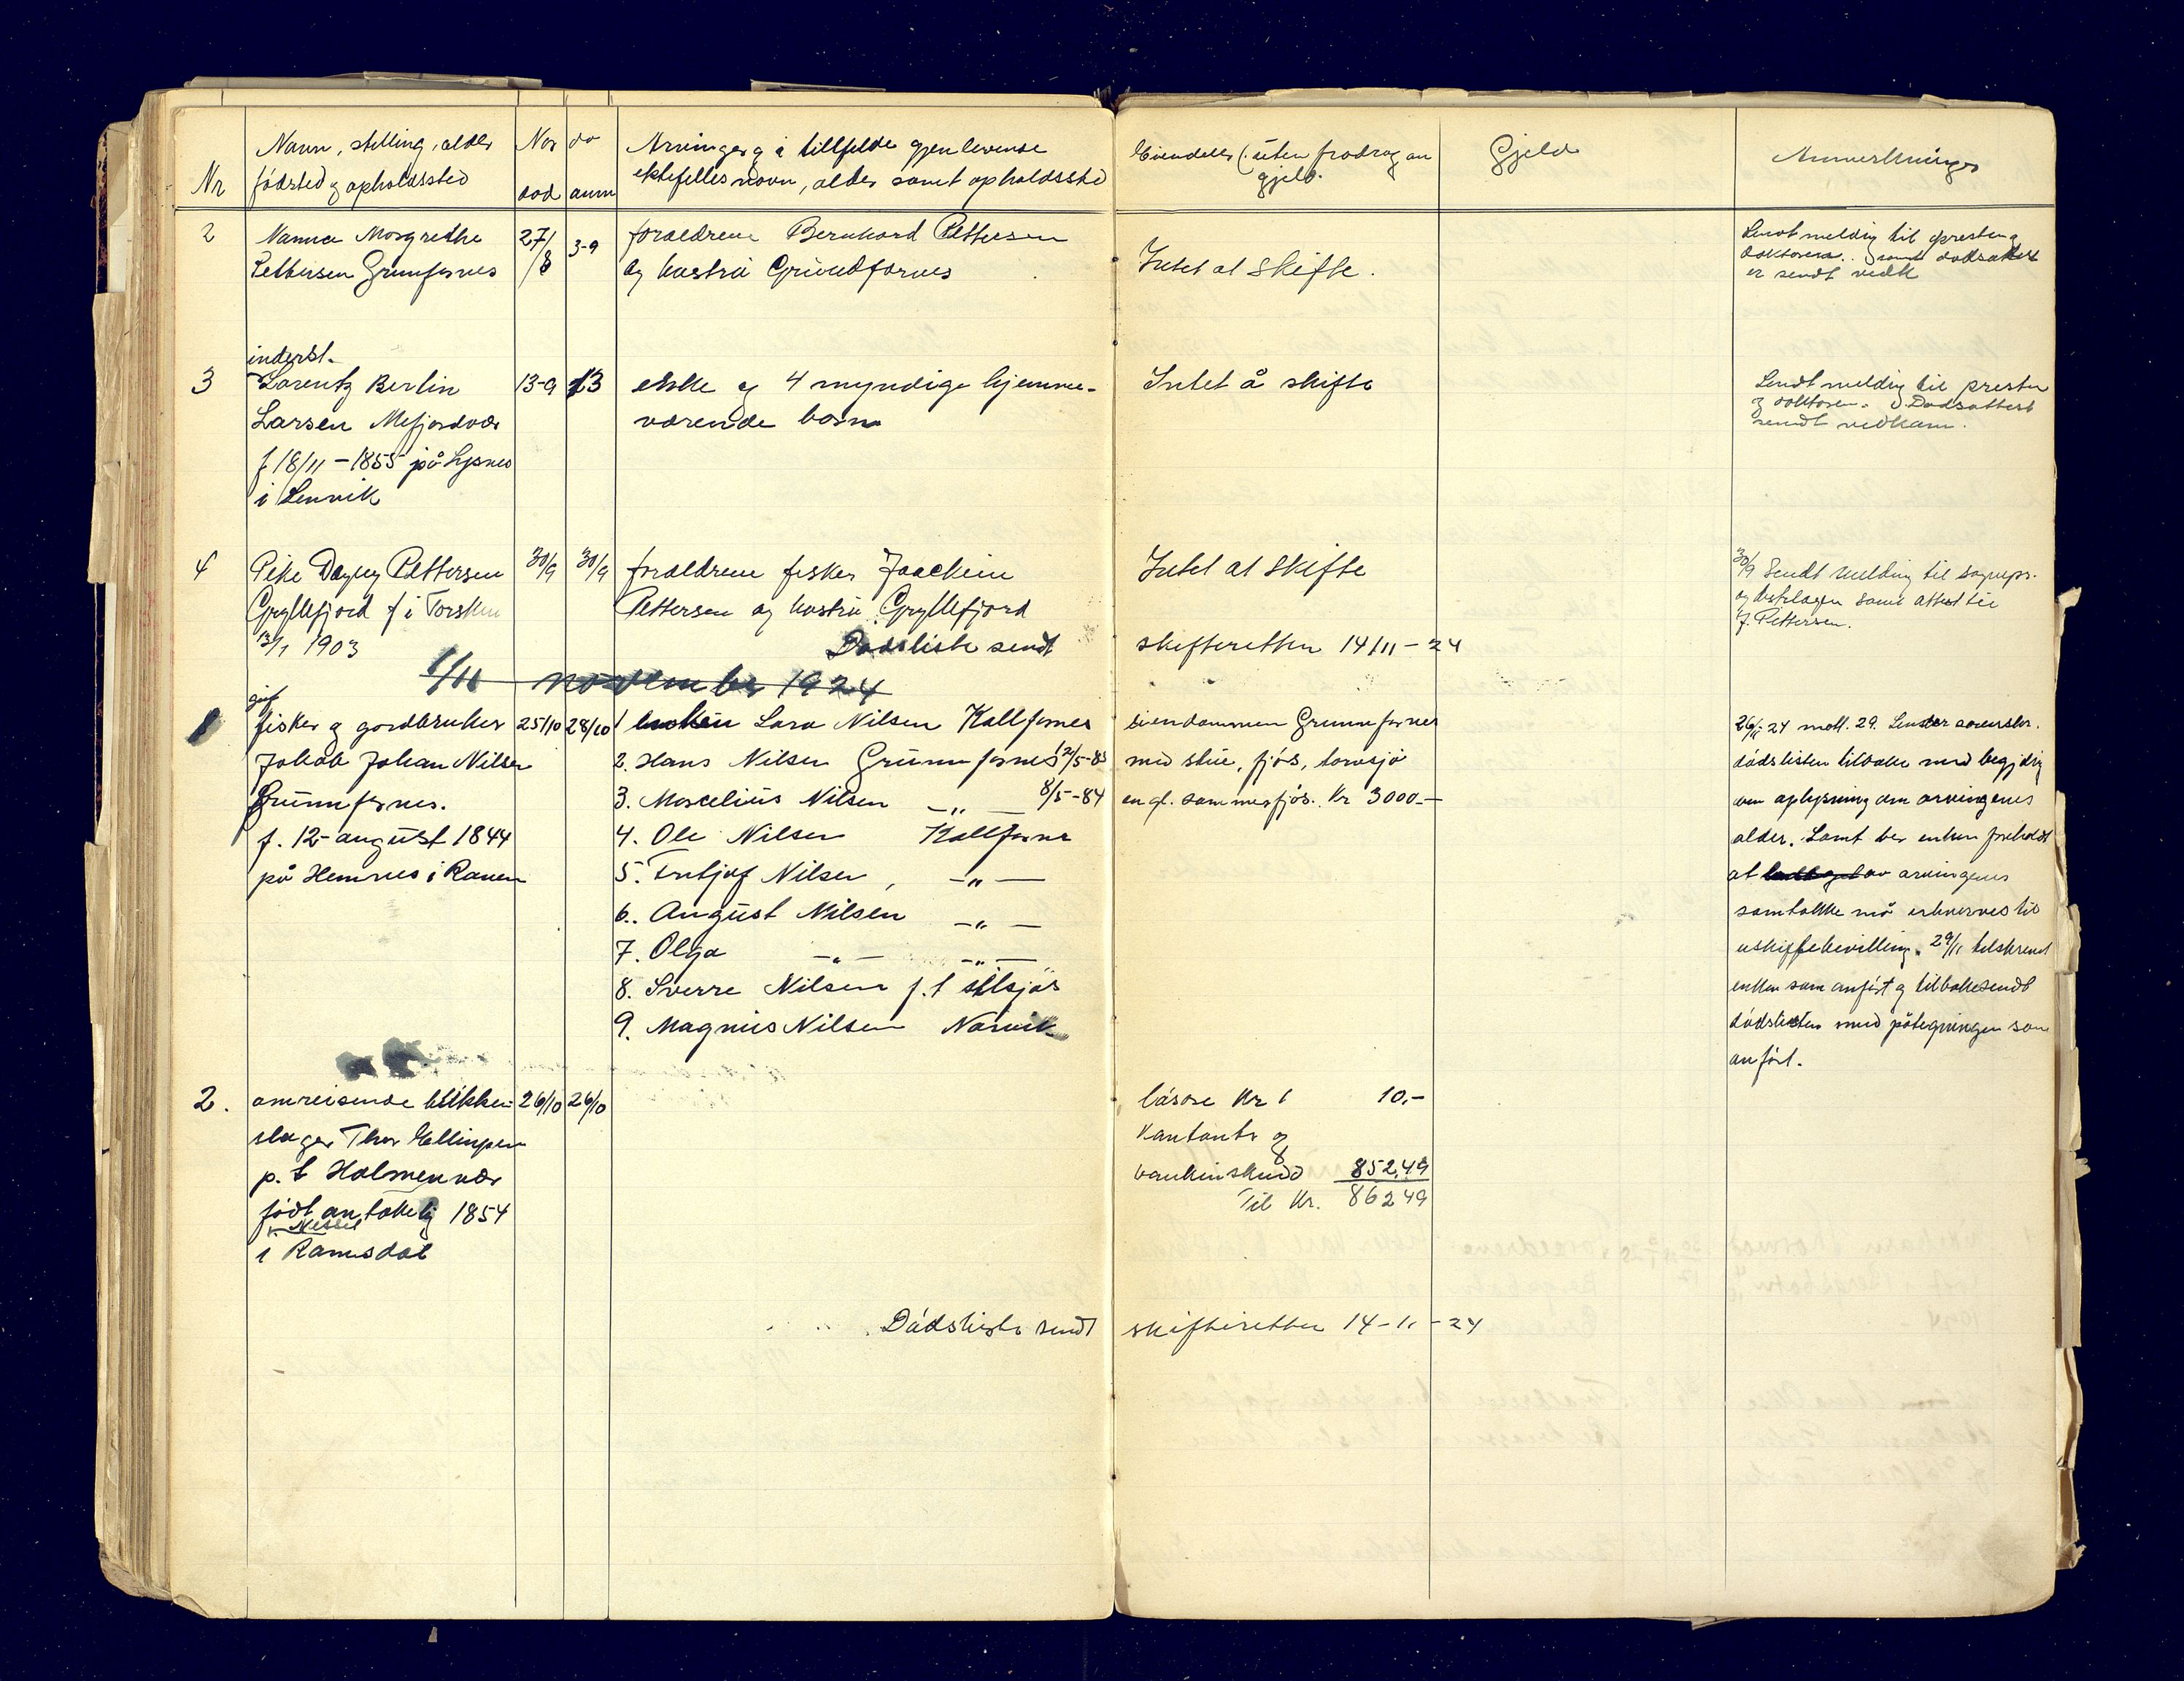 Nr
Navn, stilling, alder
fødsted og opholdssted
Når
død
do
anm
Arvinger og i tillfelde gjenlevende
ektefelles navn, alder samt opholdssted
Eiendeler (: uten fradrag av
gjeld.
Gjeld
Anmerkninger
2
Nanna Margrethe
Pettersen Grunfarnes
27/8
3-9
foraeldrene Bernhard Pettersen
og hustru Grundfarnes
Intet at skifte.
Sendt meldig til presten og
doktoren. samt dødsattest
er sendt vedk
3
inderst.
Lorentz Berlin
Larsen Mefjordvær
f 18/11 - 1855 på Lysnes
i Lenvik
13-9
13
enke og 4 myndige hjemme-
værende barn
Intet å skifte
Sendt meldig til presten
og doktoren. Dødsattest
sendt vedkam.
4
Pike Dagny Pettersen
Gryllefjord f i Torsken
13/1 1903
30/9
30/9
foraeldrene fisker Joachim
Pettersen og hustru Gryllefjord
Intet at skifte
30/9 Sendt melding til sogneps.
og distrlægen samt attest til
J. Pettersen.
Dødsliste sendt skifteretten 14/11 - 24
1/11 november 1924
1
gift
fisker og gårdbruker
Jakob Johan Nilsen
Grunnfarnes.
f. 12 august 1844
på Hemnes i Ranen
25/10
28/10
1 enken Lara Nilsen Kallfarnes
2. Hans Nilsen Grunnfarnes 12/5-83
3. Marcelius Nilsen -„- 8/5-84
4. Ole Nilsen Kallfarnes
5. Fritjof Nilsen, -„-
6. August Nilsen -„-
7. Olga -„- -„-
8. Sverre Nilsen p.t tilsjøs
9. Magnus Nilsen Narvik
eiendommen Grunnfarnes
med stue, fjøs, torvsjå
en gl. sommerfjøs. Kr 3000.-
26/11 24 mott. 29. Senter
dødslisten tilbake med begjdig
om oplysning om arvingenes
alder. Samt ber enken foreholdt
at av arvingenes
samtykke må erhverves til
uskiftebevilling. 29/11 tilskrevet
enken som anført og tilbakesendt
dødslisten med påtegningen som
anført.
2.
omreisende blikken-
slager Thor Ellingsen
p. t Holmenvær
født antakelig 1854
i Ramsdal
26/10
26/10
løsøre Kr 10,-
Kontanter og
bankinskudd 852,49
Til Kr. 862 49
Dødsliste sendt skifteretten 14 - 11 - 24